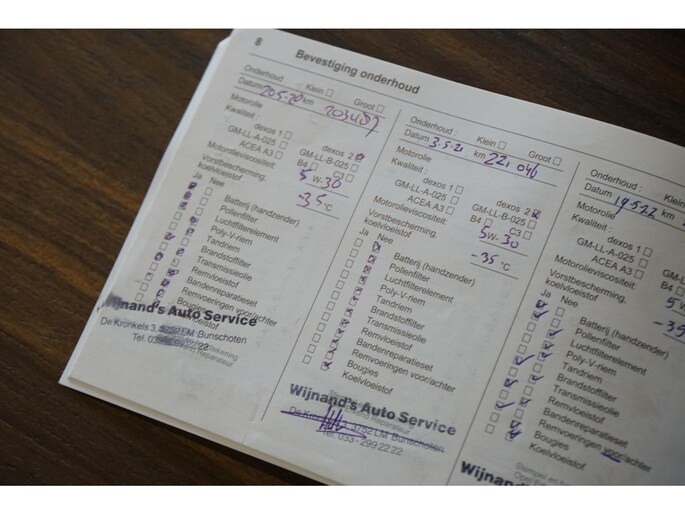 8
Bevestiging onderhoud
Onderhoud : Klein Groot
Datum 20-5-20 km 203487
Motorolie
Kwaliteit :
dexos 1 dexos 2
GM-LL-A-025 GM-LL-B-025
ACEA A3 B4 C3
Motorolieviscositeit: 5 W- 30
Vorstbescherming.
koelvloeistof -35 °C
Ja Nee
Batterij (handzender)
Pollenfilter
Luchtfilterelement
Poly-V-riem
Tandriem
Brandstoffilter
Transmissieolie
Remvloeistof
Bandenreparatieset
Remvoeringen voor/achter
Bougies
Koelvloeistof
Wijnand's Auto Service
De Kronkels 3, 3752 LM Bunschoten
Onderhoud : Klein Groot
Datum 3.5.21 km 221 046
Motorolie
Kwaliteit :
dexos 1 dexos 2
GM-LL-A-025 GM-LL-B-025
ACEA A3 B4 C3
Motorolieviscositeit: 5W- 30
Vorstbescherming.
koelvloeistof -35 °C
Ja Nee
Batterij (handzender)
Pollenfilter
Luchtfilterelement
Poly-V-riem
Tandriem
Brandstoffilter
Transmissieolie
Remvloeistof
Bandenreparatieset
Remvoeringen voor/achter
Bougies
Koelvloeistof
Wijnand's Auto Service
De Kronkels 3, 3752 LM Bunschoten
Tel. 033 - 299 22 22
Onderhoud : Klein
Datum 19-5-22 km
Motorolie
Kwaliteit :
dexos 1
GM-LL-A-025
ACEA A3
Motorolieviscositeit: 5
Vorstbescherming.
koelvloeistof -35
Ja Nee
Batterij (handzender)
Pollenfilter
Luchtfilterelement
Poly-V-riem
Tandriem
Brandstoffilter
Transmissieolie
Remvloeistof
Bandenreparatieset
Remvoeringen voor/achter
Bougies
Koelvloeistof
Wijnand's Au